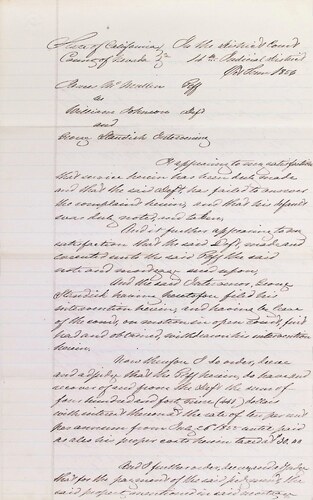 State of California In the district Court
County of Nevada 14th Judicial district
Oct Term 1856
Mc Mullen Plff
vs
William Johnson Deft
and
Standish Intervening
It appearing to my satisfaction
that service herein has been duly made
and that the said Deft has failed to answer
the complaint herein, and that his default
was duly noted, and taken,
And it further appearing to my
satisfaction that the said Deft made and
executed unto the said Plff the said
note and mortgage sued upon,
And the said Intervenor,
Standish having heretofore filed his
intervention herein, and having by leave
of the court, on motion in open Court, first
had and obtained, withdrawn his intervention
herein,
Now therefore I do order,
and adjudge that the Plff herein do have and
recover of and from the Deft the sum of
four hundred and forty nine (449) dollars
with interest thereon at the rate of ten per cent
per annum from July 26th 1855 until paid
as also his proper costs herein taxed at
And I further order, decree and adjudge
that for the payment of the said
the said property mentioned in said